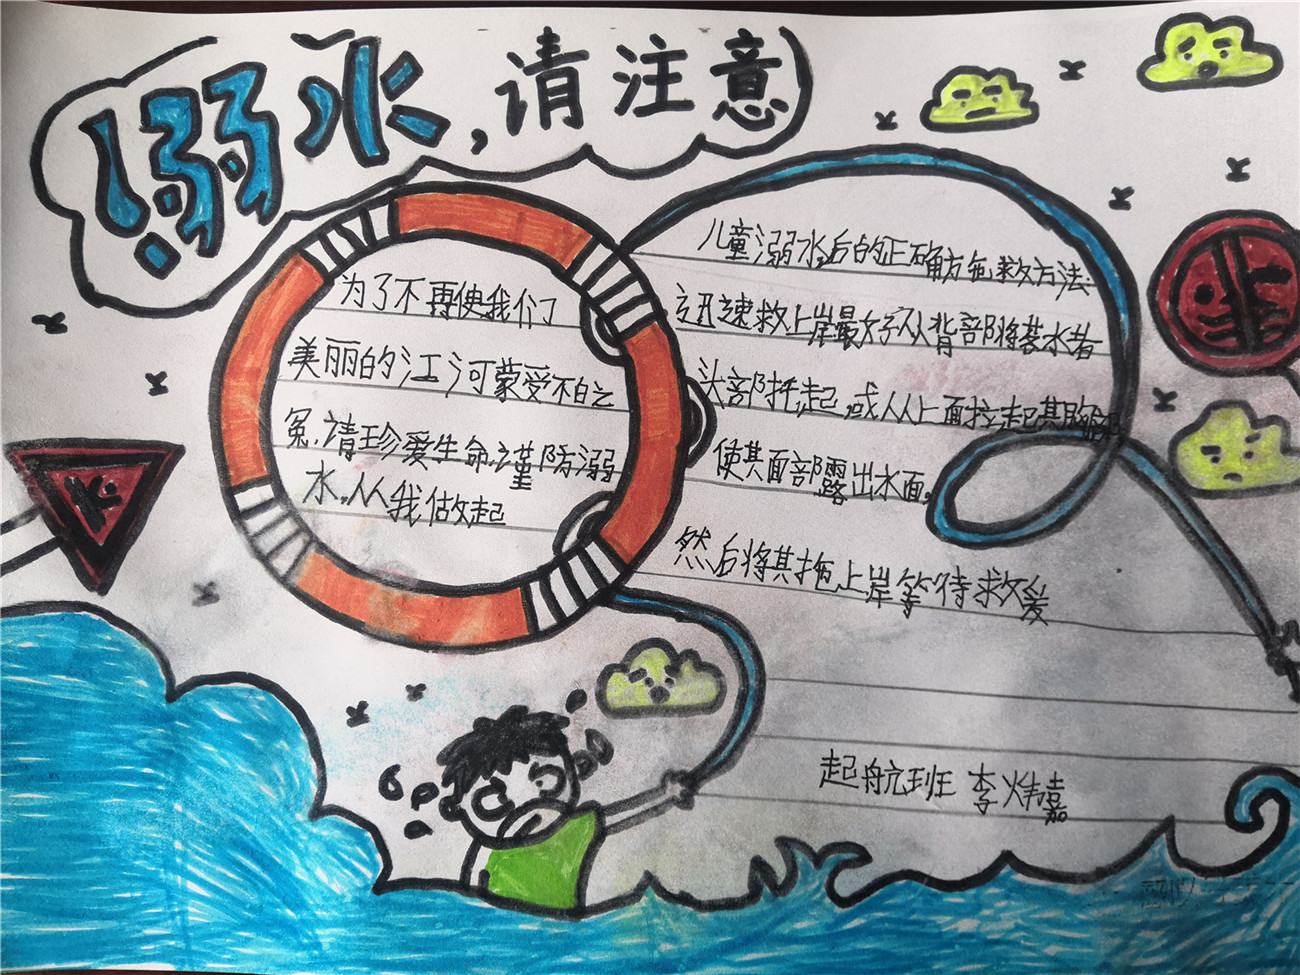 !溺水,请注意
为了不再使我们
美丽的江河蒙受不白之
冤,请珍爱生命谨防溺
水,从我做起
儿童溺水后的正确施救方法:
迅速救上岸最好从背部将落水者
头部托起,或从上面拉起其胸部
使其面部露出水面,
然后将其拖上岸等待救爰
起航班 李炜嘉